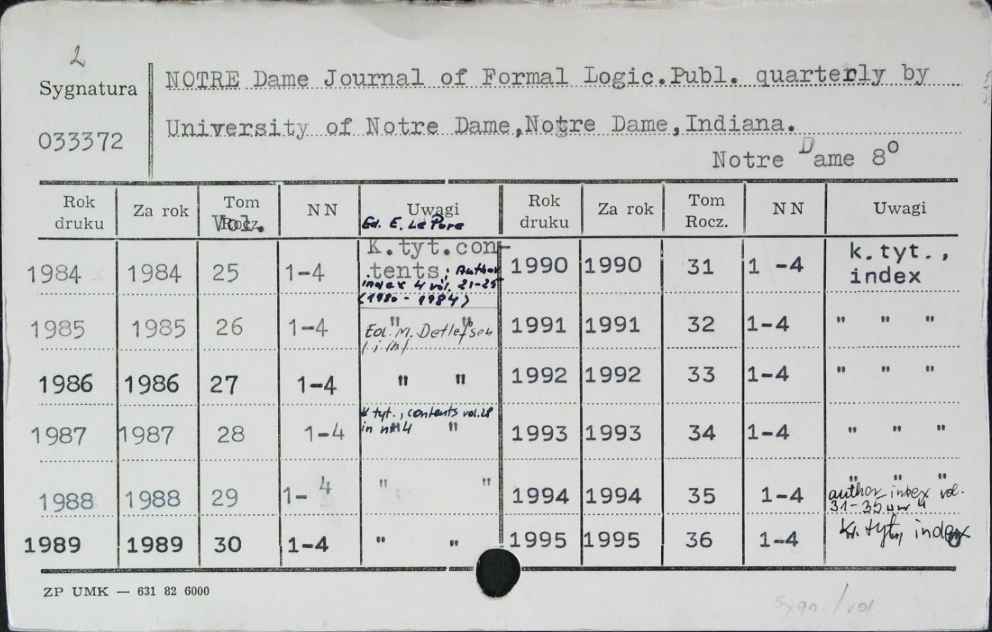 2
Sygnatura
033372
NOTRE Dame Journal of Formal Logic.Publ. quarterly by
University of Notre Dame,Notre Dame,Indiana.
Notre Dame 8°
Rok druku Za rok Tom Rocz. Vol. NN Uwagi Rok druku Za rok Tom Rocz. NN Uwagi
Ed. E. LePore
1984 1984 25 1-4 K.tyt.contents; Author index 4 vol. 21-25 (1980 - 1984)
1985 1985 26 1-4 " " Ed. M. Detlefsen (i in)
1986 1986 27 1-4 " "
1987 1987 28 1-4 K tyt., contents vol.28 in nr 4 "
1988 1988 29 1-4 " "
1989 1989 30 1-4 " "
1990 1990 31 1 -4 k.tyt., index
1991 1991 32 1-4 " " "
1992 1992 33 1-4 " " "
1993 1993 34 1-4 " " "
1994 1994 35 1-4 " " " author index vol. 31-35 w nr 4
1995 1995 36 1-4 k. tyt, index
ZP UMK — 631 82 6000
sygn. / vol